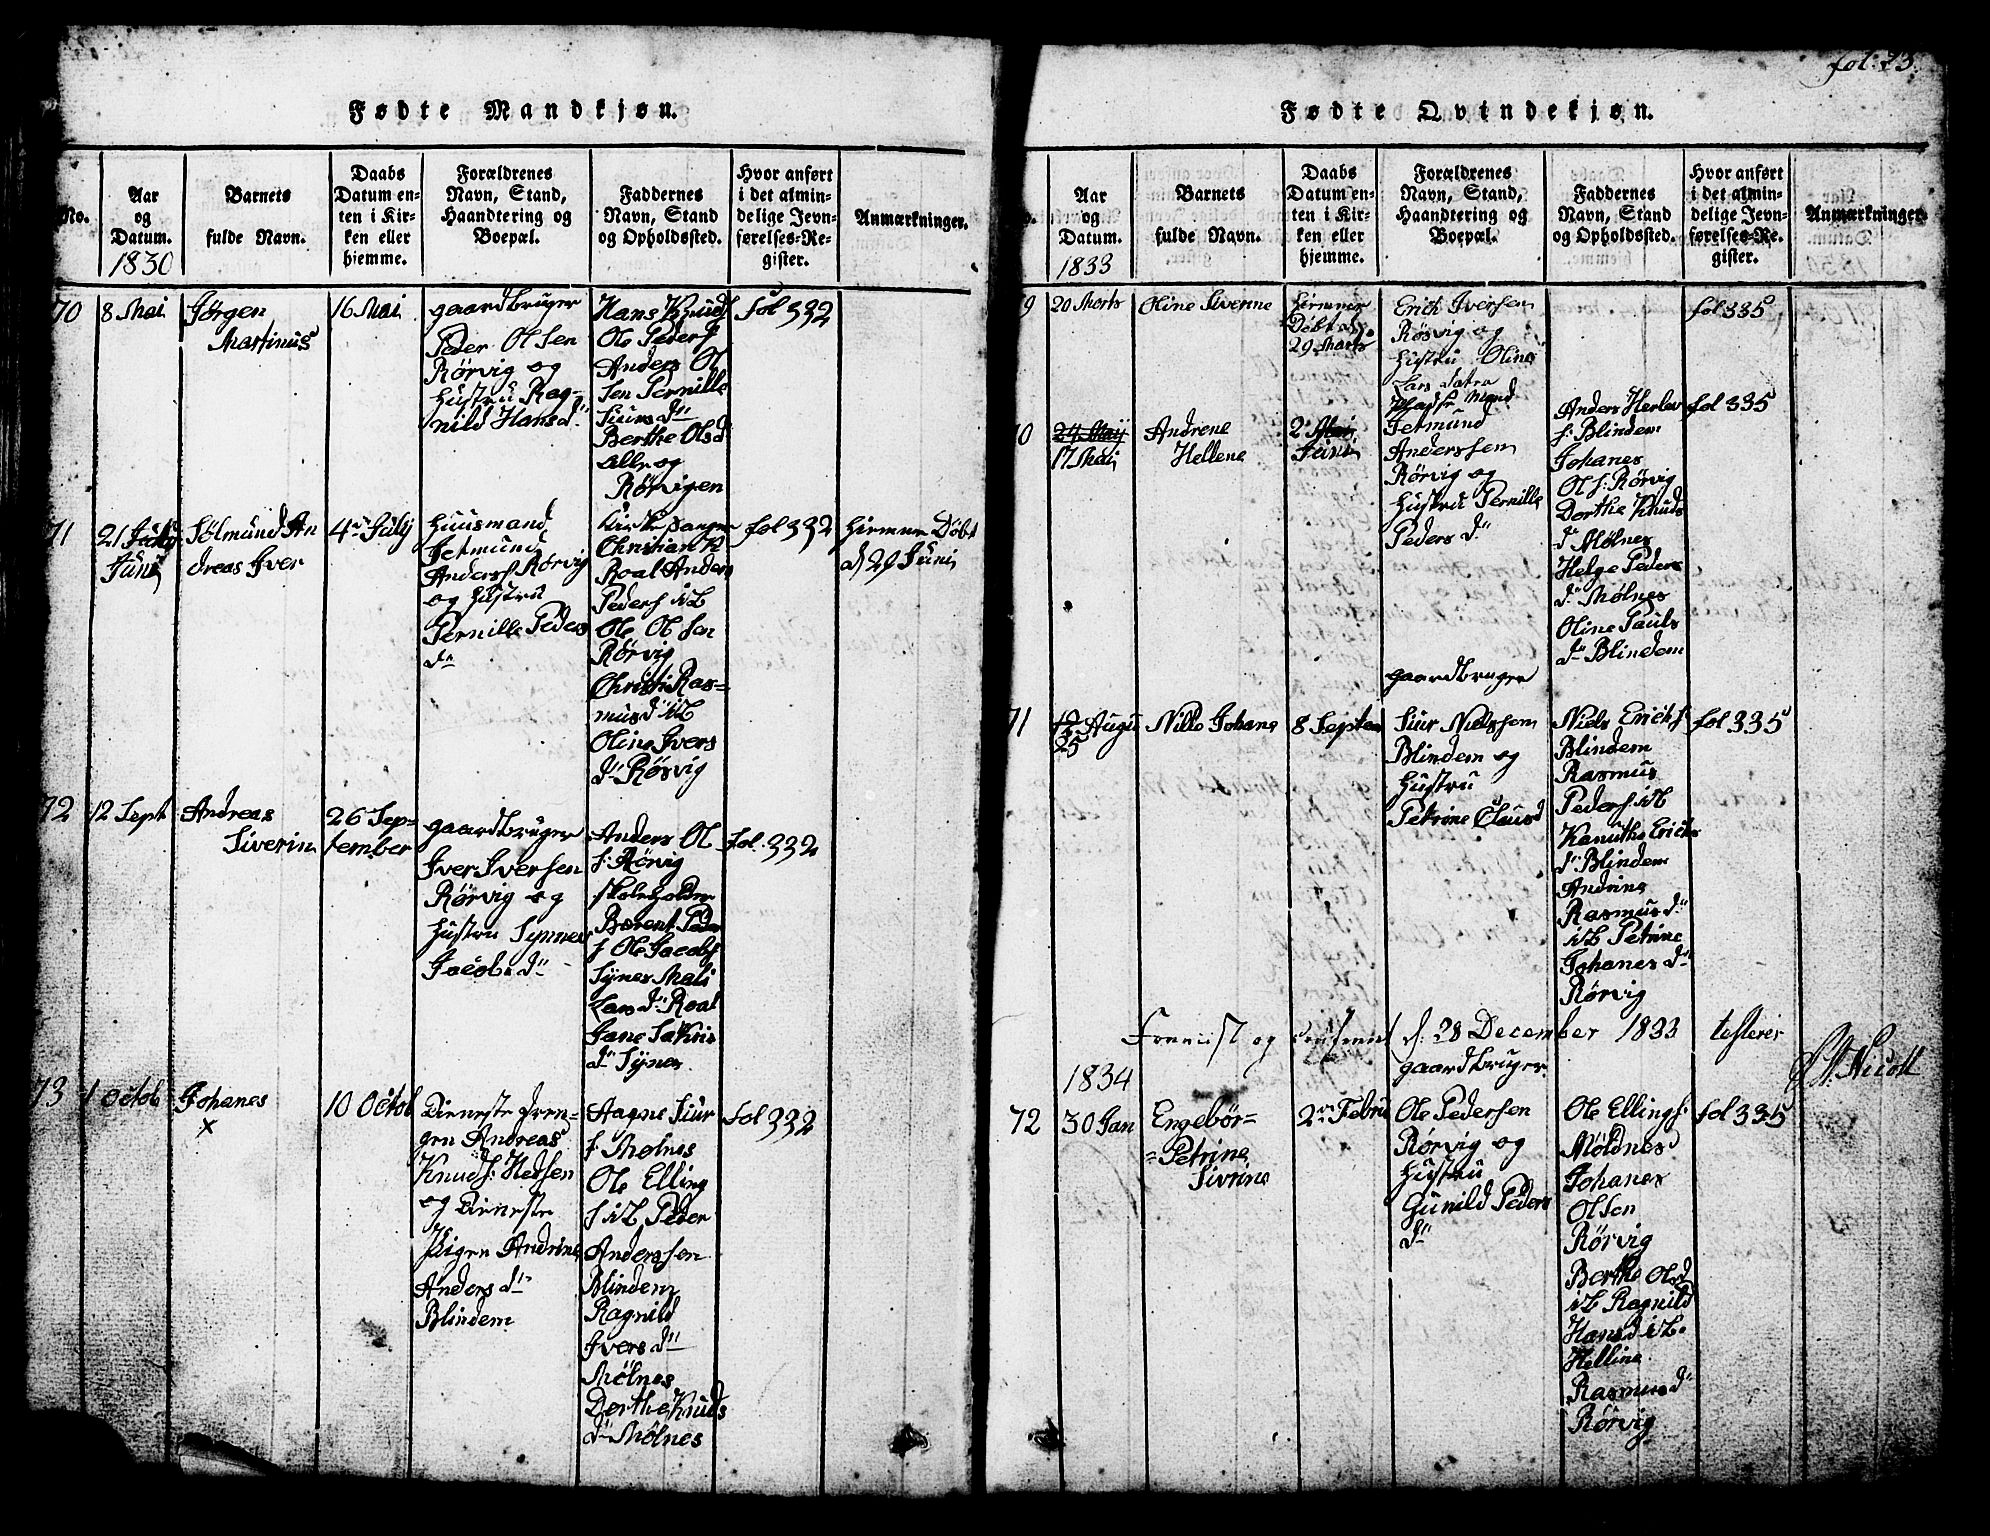 fol: 73.
Fødte Mandkjøn.
No.
Aar
og
Datum.
1830
Barnets
fulde Navn.
Daabs
Datum en-
ten i Kir-
ken eller
hjemme.
Forældrenes
Navn, Stand,
Haandtering og
Boepæl.
Faddernes
Navn, Stand
og Opholdssted.
Hvor anført
i det almin-
delige Jevn-
førelses-Re-
gister.
Anmærkninger.
70
8 Mai
Jørgen
Martinus
16 Mai
gaardbruger
Peder Olsen
Rørvig og
Hustru Rag-
nild Hansd
Hans Knuds
Ole Peders
Anders Ol
sen Pernille
Siursd
Berthe Olsd
alle og
Rørvigen
fol 332
71
21 July
Juni
Sølmund An
dreas Iver
4 July
Huusmand
Jetmund
Anders Rørvig
og Hustru
Pernille Peders
d
Kirkesanger
Christian K
Roal Anders
Peders ibd
Ole Olsen
Rørvig
Christi Ras=
musd ibd
Oline Ivers
d Rørvig
fol 332
Hiemme Døbt
d 29 Juni
72
12 Sept
Andreas
Siverin
26 Sep-
tember
gaardbruger
Iver Iversen
Rørvig og
Hustru Synnes
Jacobsd
Anders Ol
s: Rørvig
Skoleholder
Berent Peder
s Ole Jacobs
Synes Mali
Larsd Roal
Jane
d Synes
fol. 332
73
1 Octob
Johanes
x
10 Octob
Dieneste Dren-
gen Andreas
Knuds: Helsen
og Dieneste
Pigen Andrine
Andersd
Blindem
Aagne Siur
s Mølnes
Ole Elling
s ibd Peder
Anderssen
Blindem
Ragnild
Iversd
Mølnes
Dorthe Knuds
d Mølnes
fol 332
Fødte Qvindekjøn.
Aar
og
Datum.
1833
Barnets
fulde Navn.
Daabs
Datum en-
ten i Kir-
ken eller
hjemme.
Forældrenes
Navn, Stand,
Haandtering og
Boepæl.
Faddernes
Navn, Stand
og Opholdssted.
Hvor anført
i det almin-
delige Jevn-
førelses-Re-
gister.
Anmærkninger.
9
20 Marts
Oline Siverine
Hiemme
Døbt d.
29 Marts
Erich Iversen
Røsvig og
Hustru Oline
Lars Datra
fol 335
10
24 Maij
17 Mai
Andrene
Hellene
2 Mai
Juni
Jetmund
Anderssen
Rørvig og
Hustru Pernille
Peders d
Anders Herlev
s: Blindem
Johanes
Ol s: Rørvig
Dorthe Knuds
d Mølnes
Helge Peders
d Mølnes
Oline Pauls
d Blindem
fol 335
71
25 Augu
Nille Johane
8 Septem
gaardbruger
Siur Nielssen
Blindem og
Hustru
Petrine Clausd
Niels Erichs:
Blindem
Rasmus
Peders ibd
Kanuthe Erichs
d Blindem
Andrine
Rasmusd
ibd Petrine
Johanes d
Rørvig
fol 335
d: 28 December 1833 testerer
1834
72
30 Jan
Engebør=
=Petrine
Sivrine
2 Febru
gaardbruger
Ole Pedersen
Rørvig og
Hustru
Gunild Peders
d
Ole Ellings:
Møldnes
Johanes
Olsen
Rørvig
Berthe Olsd
ibd Ragnild
Hansd ibd.
Helline
Rasmusd
Rørvig
fol 335